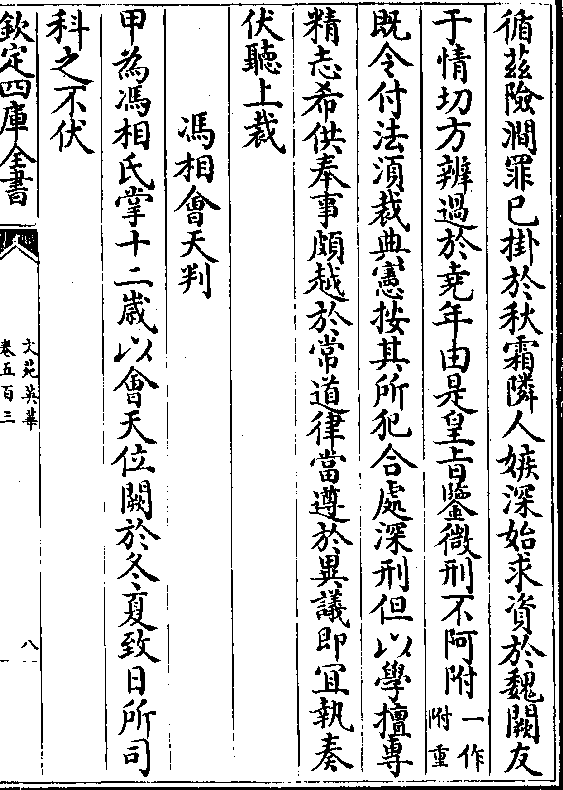 循茲險澗罪已掛於秋霜隣人嫉深始求資於魏闕友
于情切方辨過於堯年由是皇旨鑒微刑不阿附一作附重
既令付法湏裁典憲按其所犯合處深刑但以學擅專
精志希供奉事頗越於常道律當遵於異議即宜執奏
伏聽上裁
馮相會天判
甲為馮相氏掌十二歲以會天位闕於冬夏致日所司
科之不伏
欽定四庫全書
文苑英華
卷五百三
八